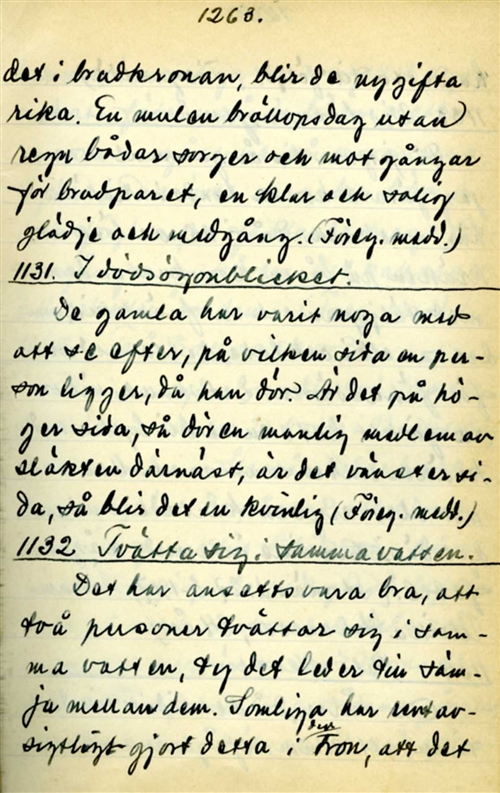 1263.
det i brudkronan, blir de nygifta
rika. En mulen bröllopsdag utan
regn bådar sorger och motgångar
för brudparet, en klar och solig
glädje och medgång. (Föreg. medd.)
1131. I dödsögonblicket.
De gamla har varit noga med
att se efter, på vilken sida en per-
son ligger, då han dör. Är det på hö-
ger sida, så dör en manlig medlem av
släkten därnäst, är det vänster si-
da, så blir det en kvinlig (Föreg. medd.)
1132 Tvätta sig i samma vatten.
Det har ansetts vara bra, att
två personer tvättar sig i sam-
ma vatten, ty det leder till säm-
ja mellan dem. Somliga har rent av-
siktligt gjort detta i den Tron, att det